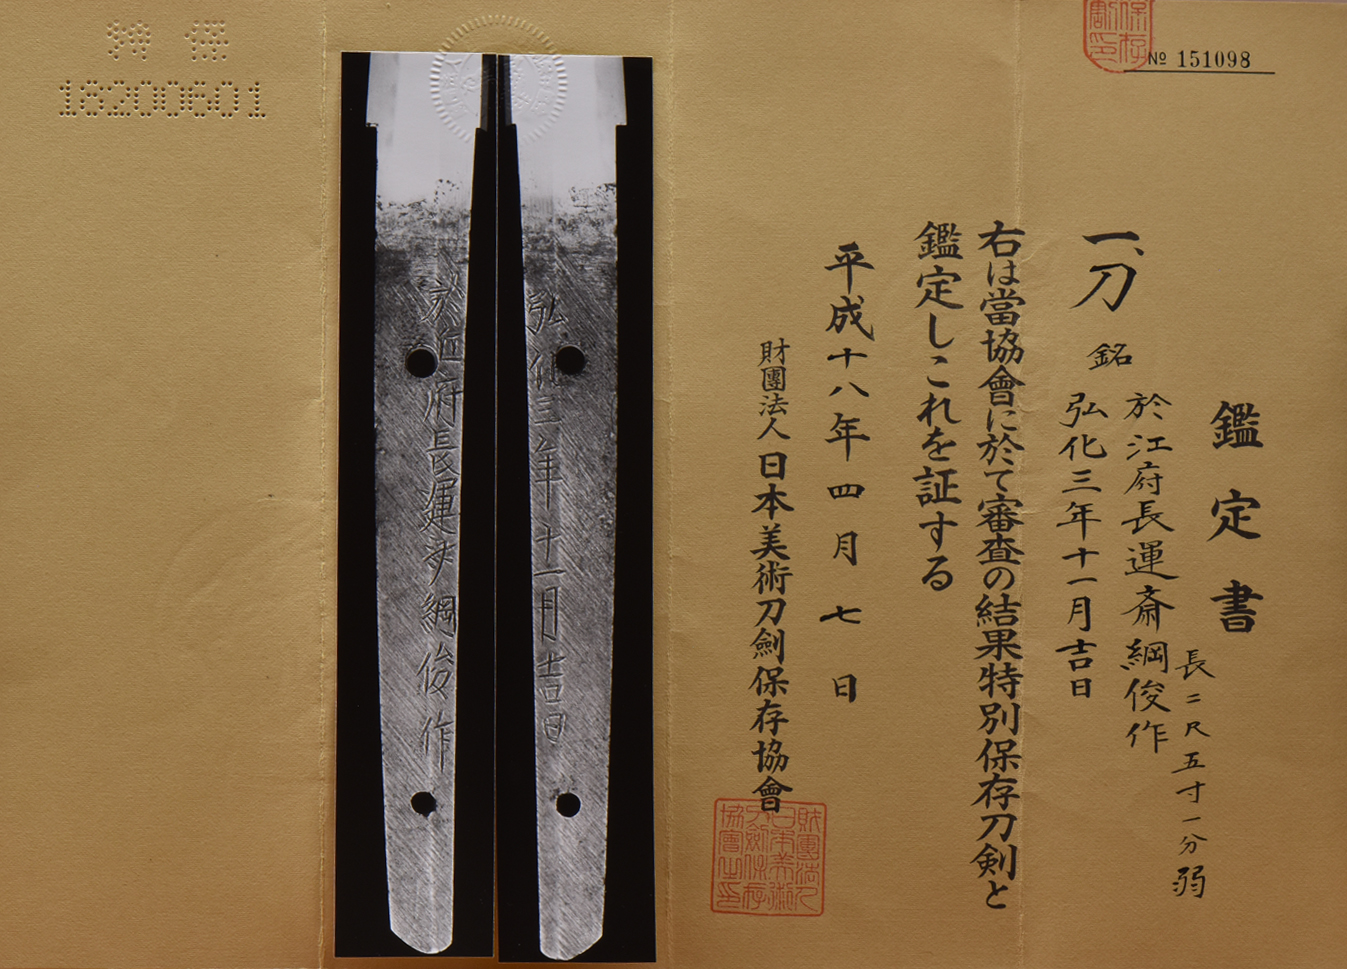 保存
割印
№ 151098
鑑定書
一、刀 銘 於江府長運斎綱俊作
弘化三年十一月吉日
長二尺五寸一分弱
右は當協會に於て審査の結果特別保存刀剣と
鑑定しこれを証する
平成十八年四月七日
財團法人日本美術刀劍保存協會
財團法人
日本美術
刀劍保存
協會之印
弘化三年十一月吉日
於江府長運斎綱俊作
特保
18200601